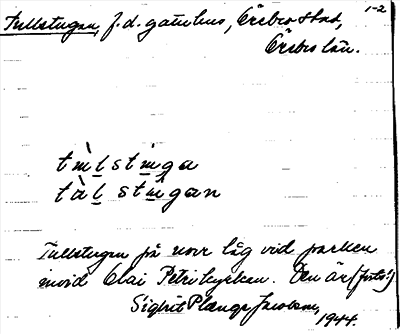 1-2
Tullstugan, f.d. gathus, Örebro stad,
Örebro län.
tùlstùga
tùlstùgan
Tullstugan på norr låg vid parken
invid Olai Petri kyrkan. Den är (forts!)
Sigbrit Plænge Jacobson,
1944.